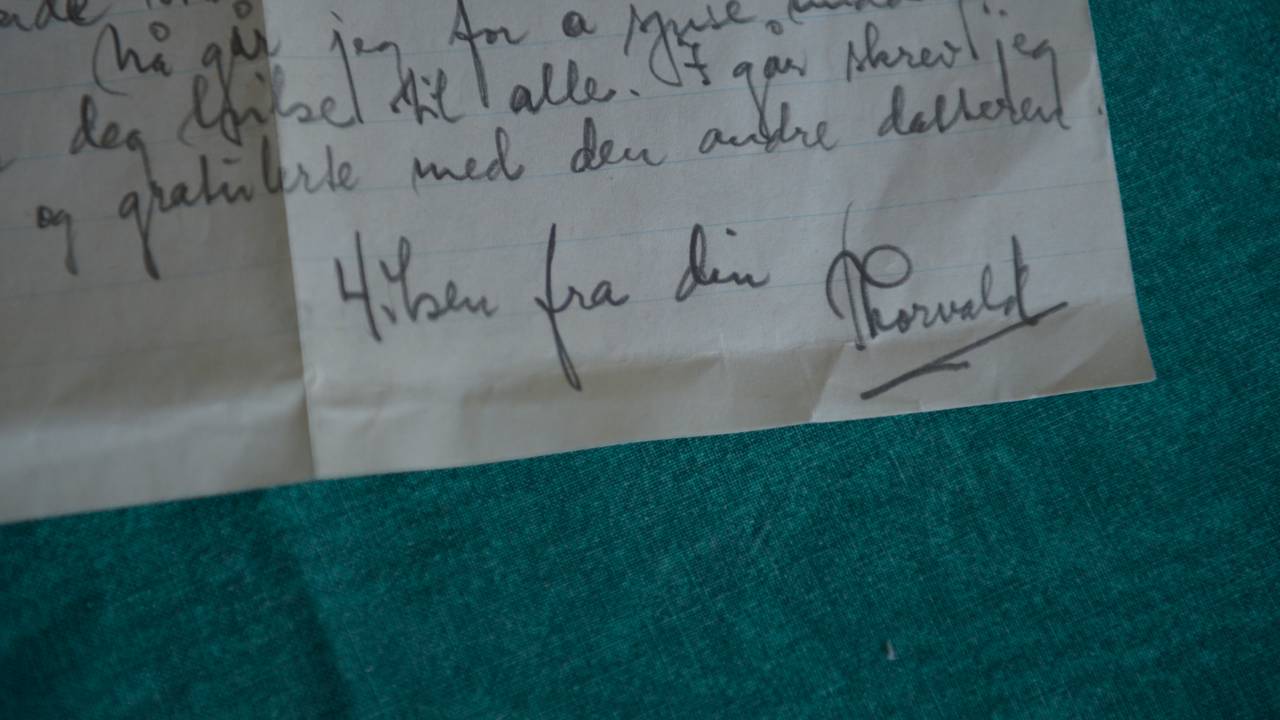 nå går jeg for a
deg hilsel til alle. I går skrev jeg
og gratulerte med den andre datteren.
Hilsen fra din Thorvald